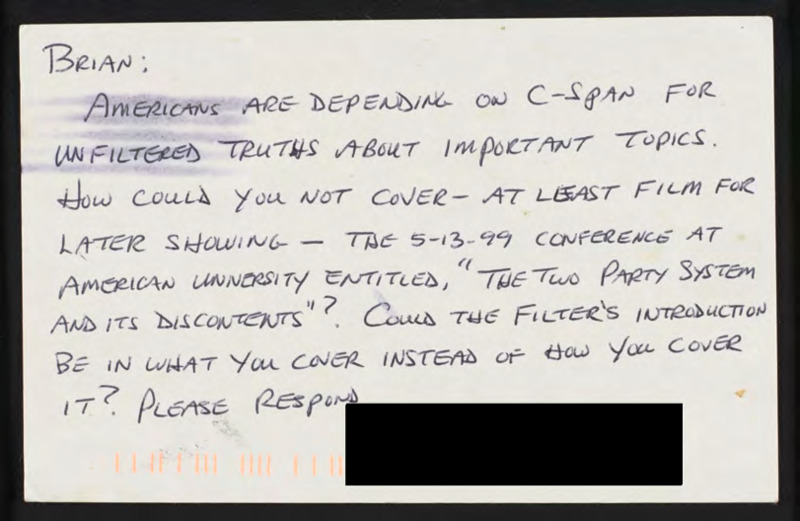 BRIAN:
AMERICANS ARE DEPENDING ON C-SPAN FOR
UNFILTERED TRUTHS ABOUT IMPORTANT TOPICS.
HOW COULD YOU NOT COVER – AT LEAST FILM FOR
LATER SHOWING – THE 5-13-99 CONFERENCE AT
AMERICAN UNIVERSITY ENTITLED, "THE TWO PARTY SYSTEM
AND ITS DISCONTENTS"? COULD THE FILTER'S INTRODUCTION
BE IN WHAT YOU COVER INSTEAD OF HOW YOU COVER
IT? PLEASE RESPOND